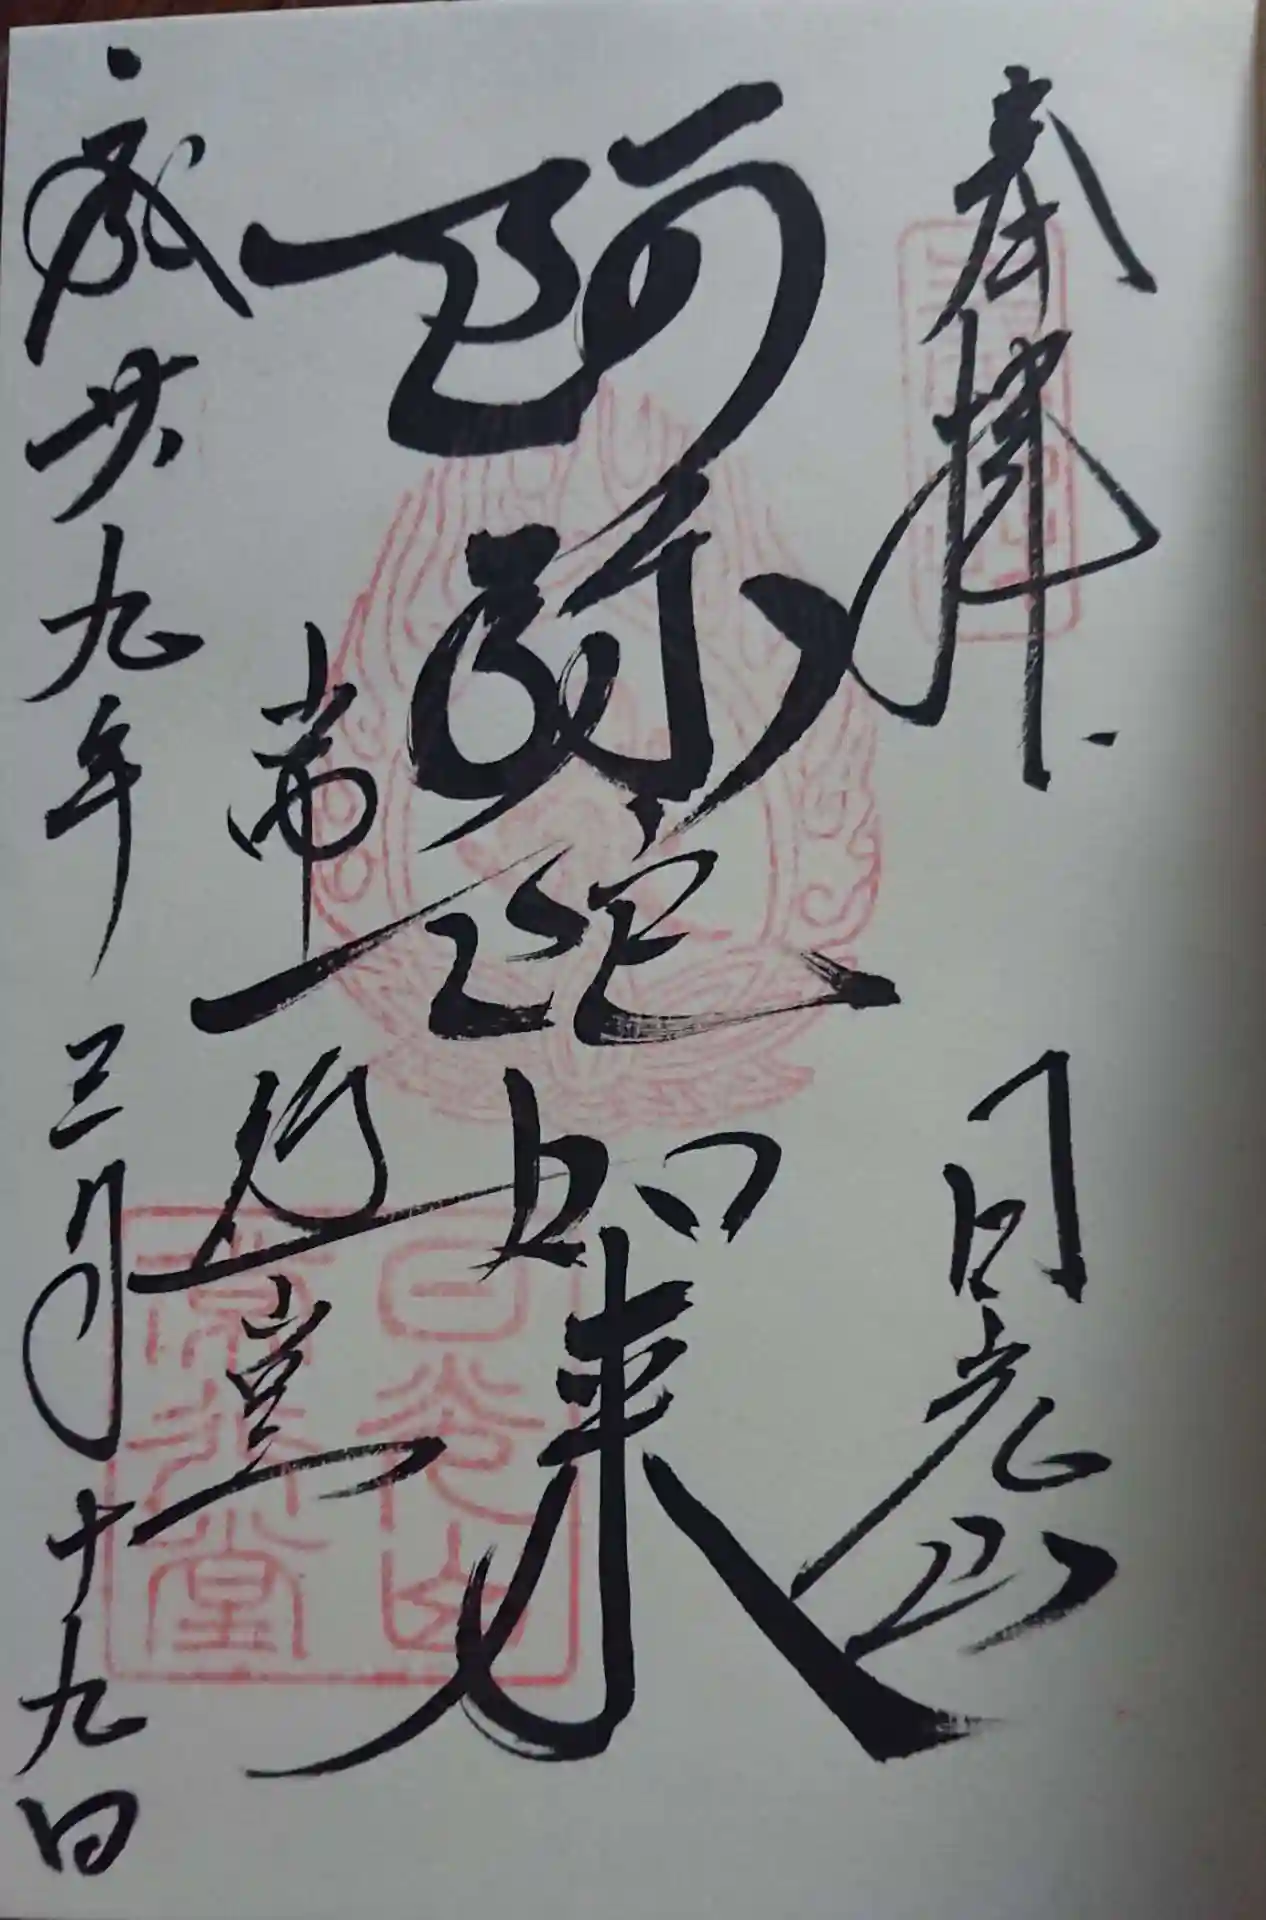 奉拝　日光山
阿弥陀如来
常行堂
平成廿九年三月十九日
日光山
常行堂